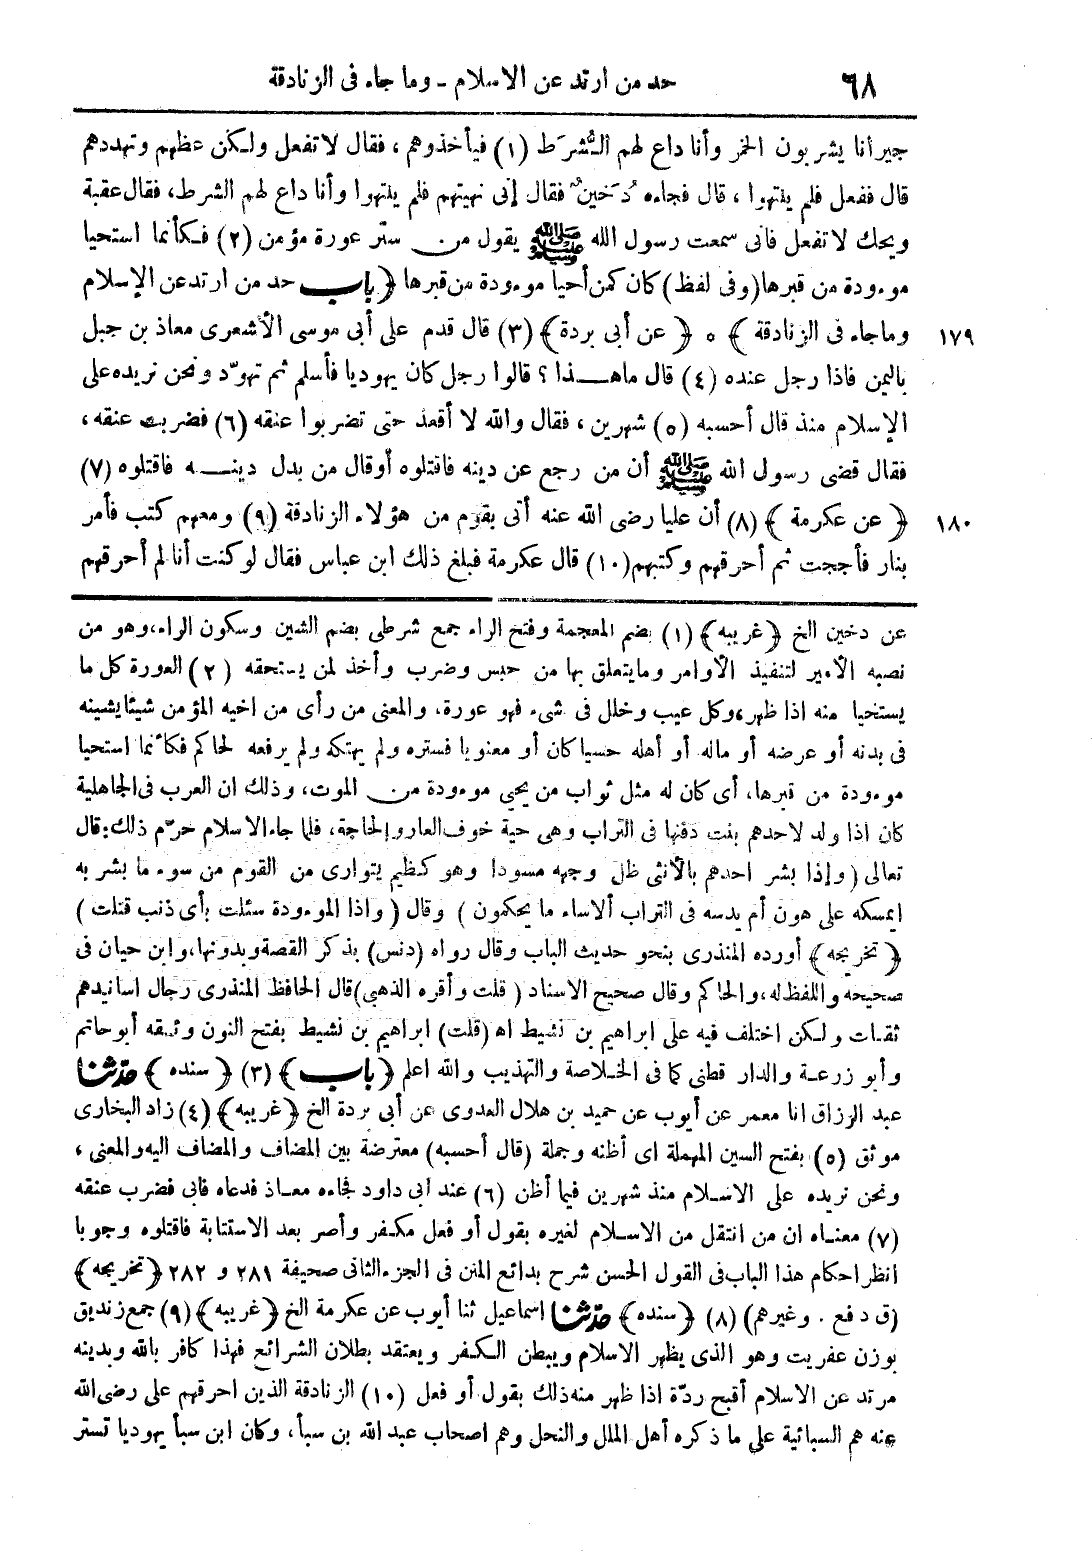 ٦٨ حد من ارتد عن الاسلام - وما جاء فى الزنادقة
جيرانا يشربون الخمر وأنا داع لهم الشُّرَط (١) فيأخذوهم ، فقال لا تفعل ولكن عظهم وتهددهم
قال ففعل فلم ينتهوا ، قال فجاءه دُخَينٌ فقال إنى نهيتهم فلم ينتهوا وأنا داع لهم الشرط، فقال عقبة
ويحك لا تفعل فانى سمعت رسول الله ﷺ يقول من ستر عورة مؤمن (٢) فكأنما استحيا
موءودة من قبرها (وفى لفظ) كان كمن أحيا موءودة من قبرها ﴿ باب حد من ارتد عن الإسلام
١٧٩ وما جاء فى الزنادقة ﴾ ٥ ﴿ عن أبى بردة ﴾ (٣) قال قدم على أبى موسى الأشعرى معاذ بن جبل
باليمن فاذا رجل عنده (٤) قال ما هذا ؟ قالوا رجل كان يهوديا فأسلم ثم تهوّد ونحن نريده على
الإسلام منذ قال أحسبه (٥) شهرين ، فقال والله لا أقعد حتى تضربوا عنقه (٦) فضربت عنقه ،
فقال قضى رسول الله ﷺ أن من رجع عن دينه فاقتلوه أو قال من بدل دينه فاقتلوه (٧)
١٨٠ ﴿ عن عكرمة ﴾ (٨) أن عليا رضى الله عنه أتى بقوم من هؤلاء الزنادقة (٩) ومعهم كتب فأمر
بنار فأججت ثم أحرقهم وكتبهم (١٠) قال عكرمة فبلغ ذلك ابن عباس فقال لو كنت أنا لم أحرقهم
عن دخين الخ ﴿ غريبه ﴾ (١) بضم المعجمة وفتح الراء جمع شرطى بضم الشين وسكون الراء، وهو من
نصبه الأمير لتنفيذ الأوامر وما يتعلق بها من حبس وضرب وأخذ لمن يستحقه (٢) العورة كل ما
يستحيا منه اذا ظهر، وكل عيب وخلل فى شىء فهو عورة، والمعنى من رأى من اخيه المؤمن شيئا يشينه
فى بدنه أو عرضه أو ماله أو أهله حسيا كان أو معنويا فستره ولم يهتكه ولم يرفعه لحاكم فكأنما استحيا
موءودة من قبرها، أى كان له مثل ثواب من يحيي موءودة من الموت، وذلك ان العرب فى الجاهلية
كان اذا ولد لاحدهم بنت دفنها فى التراب وهى حية خوف العار والحاجة، فلما جاء الاسلام حرّم ذلك: قال
تعالى (وإذا بشر احدهم بالأنثى ظل وجهه مسودا وهو كظيم يتوارى من القوم من سوء ما بشر به
ايمسكه على هون أم يدسه فى التراب ألا ساء ما يحكمون) وقال (واذا الموءودة سئلت بأى ذنب قتلت)
﴿ تخريجه ﴾ أورده المنذرى بنحو حديث الباب وقال رواه (دنس) بذكر القصة وبدونها، وابن حبان فى
صحيحه واللفظ له، والحاكم وقال صحيح الاسناد (قلت وأقره الذهبى) قال الحافظ المنذرى رجال اسانيدهم
ثقات ولكن اختلف فيه على ابراهيم بن نشيط اه (قلت) ابراهيم بن نشيط بفتح النون وثقه أبو حاتم
وأبو زرعة والدار قطنى كما فى الخلاصة والتهذيب والله اعلم ﴿ باب ﴾ (٣) ﴿ سنده ﴾ حدّثنا
عبد الرزاق انا معمر عن أيوب عن حميد بن هلال العدوى عن أبى بردة الخ ﴿ غريبه ﴾ (٤) زاد البخارى
موثق (٥) بفتح السين المهملة اى أظنه وجملة (قال أحسبه) معترضة بين المضاف والمضاف اليه والمعنى ،
ونحن نريده على الاسلام منذ شهرين فيما أظن (٦) عند ابى داود فجاءه معاذ فدعاه فابى فضرب عنقه
(٧) معناه ان من انتقل من الاسلام لغيره بقول أو فعل مكفر وأصر بعد الاستتابة فاقتلوه وجوبا
انظر احكام هذا الباب فى القول الحسن شرح بدائع المنن فى الجزء الثانى صحيفة ٢٨١ و ٢٨٢ ﴿ تخريجه ﴾
(ق د فع . وغيرهم) (٨) ﴿ سنده ﴾ حدّثنا اسماعيل ثنا أيوب عن عكرمة الخ ﴿ غريبه ﴾ (٩) جمع زنديق
بوزن عفريت وهو الذى يظهر الاسلام ويبطن الكفر ويعتقد بطلان الشرائع فهذا كافر بالله وبدينه
مرتد عن الاسلام أقبح ردّة اذا ظهر منه ذلك بقول أو فعل (١٠) الزنادقة الذين احرقهم على رضى الله
عنه هم السبائية على ما ذكره أهل الملل والنحل وهم اصحاب عبد الله بن سبأ، وكان ابن سبأ يهوديا تستر